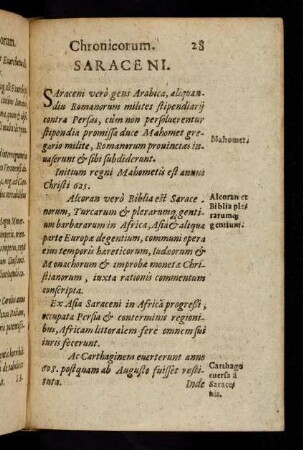 Chronicorum. 28
SARACENI.
Saraceni verò gens Arabica, aliquan-
diu Romanorum milites stipendiarij
contra Persas, cùm non persoluerentur
stipendia promissa duce Mahomet gre-
gario milite, Romanorum prouincias in-
uaserunt & sibi subdiderunt.
Mahomet.
Initium regni Mahometis est anno
Christi 625.
Alcoran verò Biblia est Sarace-
norum, Turcarum & plerarumq; gentium
barbararum in Africa, Asia & aliqua
parte Europæ degentium, communi opera
eius temporis hæreticorum, Iudæorum &
Monachorum & improbæ monetæ Chri-
stianorum, iuxta rationis commentum
conscripta.
Alcoran et
Biblia ple
rarumq;
gentium.
Ex Asia Saraceni in Africã progressi,
occupata Persia & conterminis regioni-
bus, Africam littoralem ferè omnem sui
iuris fecerunt.
Ac Carthaginem euerterunt anno
698. postquam ab Augusto fuisset resti-
tuta.
Carthago
euersa á
Sarace-
nis.
Inde